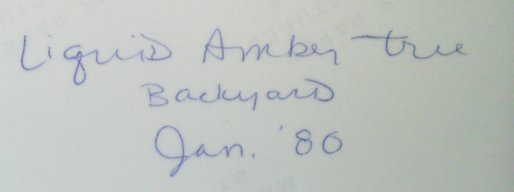 Liquid Amber tree
Backyard
Jan. '80